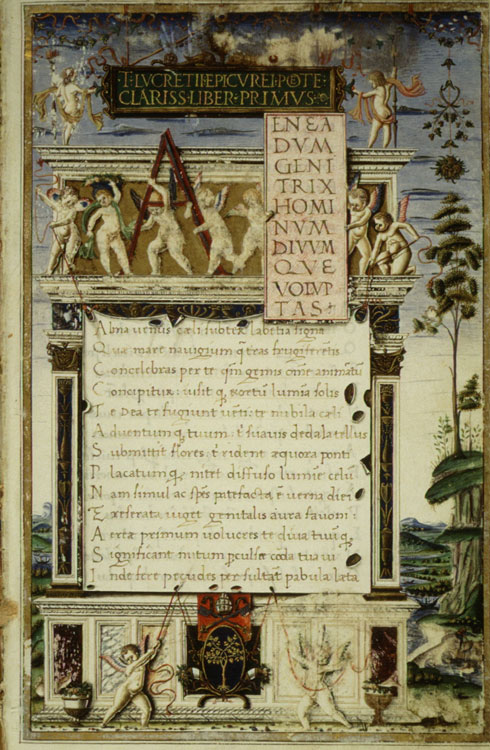 T·LVCRETII·EPICVREI·POETE
CLARISS·LIBER·PRIMVS·
A
ENEA
DVM
GENI
TRIX
HOMI
NVM
DIVVM
QVE
VOLVP
TAS
Alma venus cæli subter labētia signa
Quæ mare navigium q̄ teras frugiferētis
Concelebras per te qm̄ genus om̄e animātū
Concipitur: visit q̧ exortū lumīa solis
Te Dea te fugiunt vēti: te nubila cæli
Adventumq̧ tuum: t' suavis dedala tellus
Submittit flores: t' rident æquora ponti
Placatumq̧ nitet diffuso lumīe celū
Nam simul ac spēs patefacta ē verna diei
Et reserata viget genitalis aura favoni:
Aeriæ primum volucres te diva tuūq̧
Significant initum pculsæ corda tua vi
Inde fere pecudes per sultāt pabula læta